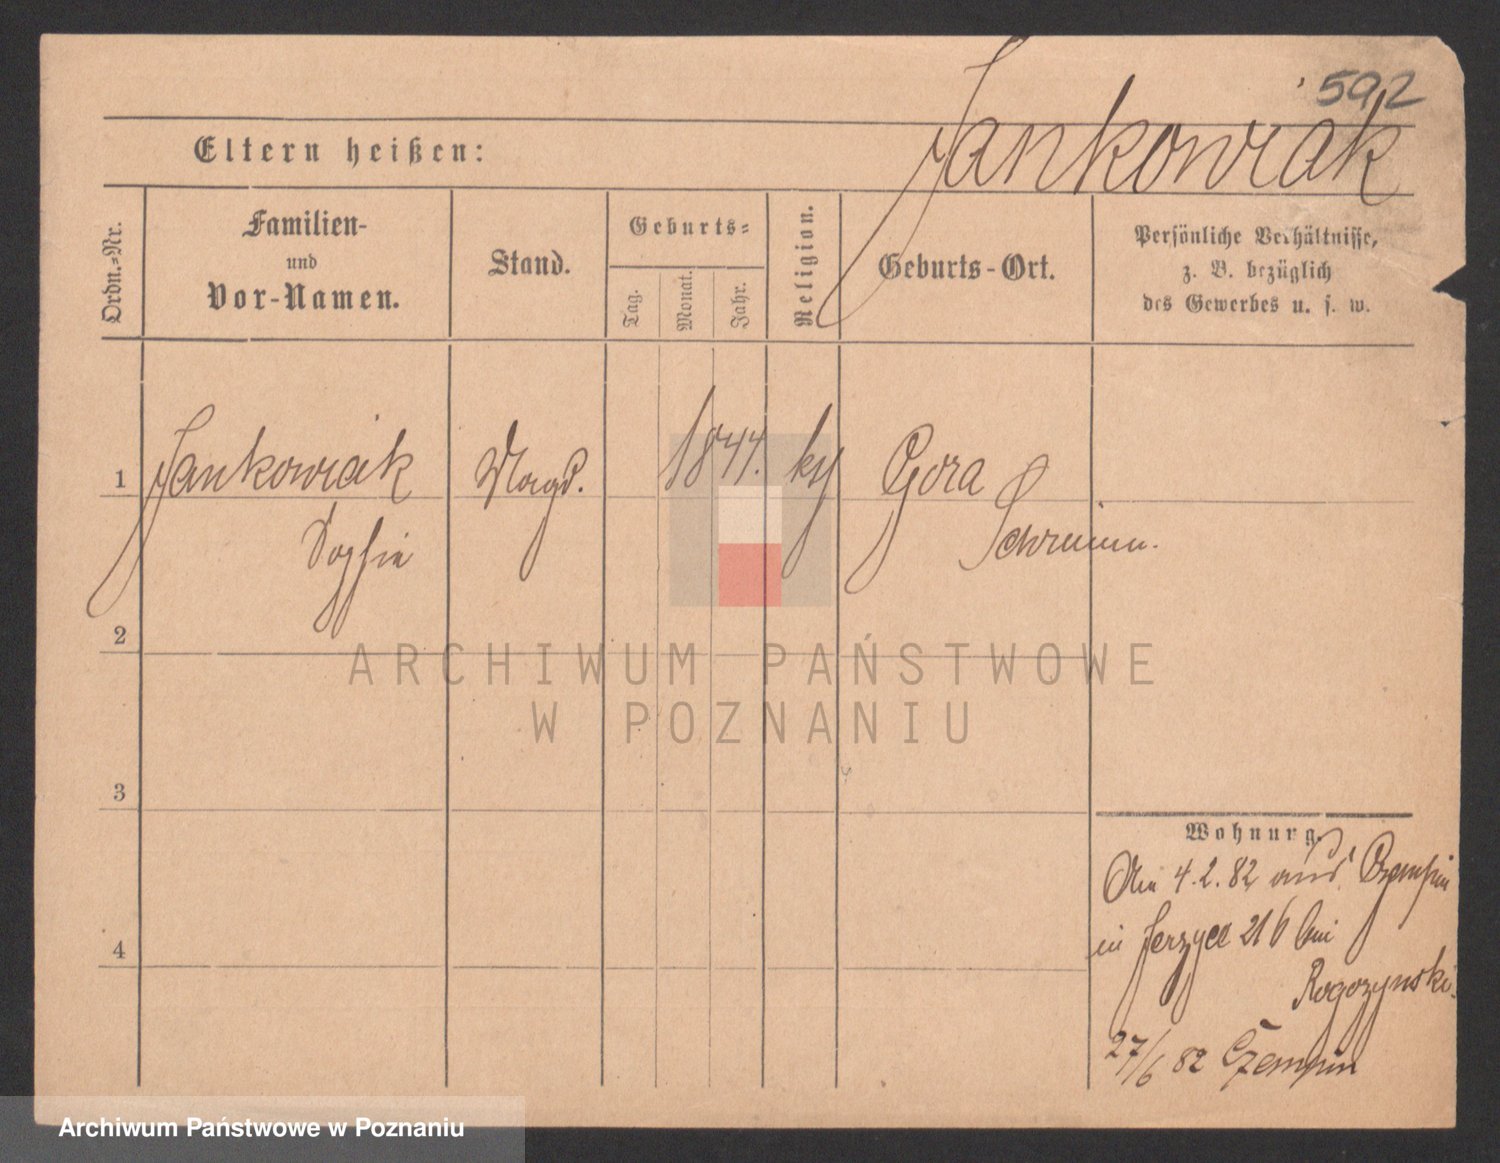 592
Jankowiak
Eltern heißen:
Ordn.-Nr.
Familien-
und
Vor-Namen.
Stand.
Geburts-
Tag.
Monat.
Jahr.
Religion.
Geburts-Ort.
Persönliche Verhältnisse,
z. B. bezüglich
des Gewerbes u. s. w.
1
Jankowiak
Sophie
Magd.
1844.
Gora
Schrimm.
2
ARCHIWUM PAŃSTWOWE
W POZNANIU
3
4
Wohnung.
Am 4.2.82 aus Czempin
in Jerzyce 216 bei
Rogozynski.
27/6 82 Czempin
Archiwum Państwowe w Poznaniu